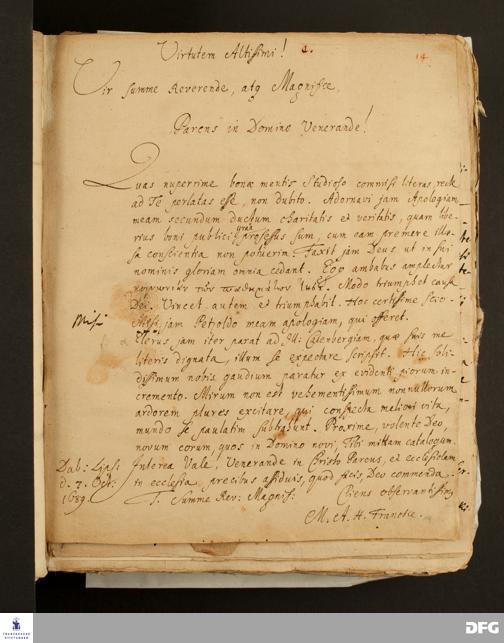 Virtutem Altissimi! 1.
14
Vir Summe Reverende, atq Magnifice,
Parens in Domino Venerande!
Quas nuperrime bonae mentis Studioso commisi literas, recte
ad Te perlatas esse, non dubito. Adornavi jam Apologiam
meam secundum ductum charitatis et veritatis, quam libe-
rius boni publici gratia professus sum, cum eam premere illae-
sa conscientia non potuerim. Faxit jam Deus, ut in sui
nominis gloriam omnia cedant. Ego ambabus amplectar
κοινωνίαν τῶν παθημάτων Modo triumphet causa
Dei. Vincet autem et triumphabit. Hoc certissime scio.
Misi
Misi jam Petzoldo meam apologiam, qui offeret.
Elerus jam iter parat ad quae suis me
literis dignata, illum se expectare scripsit. Hic soli-
dissimum nobis gaudium paratur ex evidenti piorum in-
cremento. Mirum non est vehementissimum nonnullorum
ardorem plures excitare, qui conspecta meliori vita,
mundo se paulatim subtrahunt. Proxime, volente Deo,
novum eorum, quos in Domino novi, Tibi mittam catalogum.
Interea Vale, Venerande in Christo Parens, et ecclesiolam
in ecclesia, precibus assiduis, quod facis, Deo commenda.
Dab: Lips:
d. 7. Oct:
1689.
T. Summe Rev: Magnif:
Cliens observantissim
M. A. H. Francke.
FRANCKESCHE
STIFTUNGEN
DFG